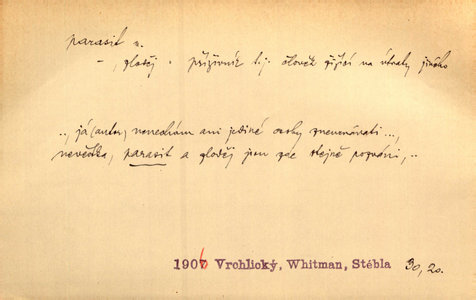 parasit m.
–, zloděj • příživník t.j. člověk žijící na útraty jiného
.., já (autor) nenechám ani jediné osoby zneuznávati...,
nevěstka, parasit a zloděj jsou zde stejně pozváni,..
1906 Vrchlický, Whitman, Stébla 30, 20.